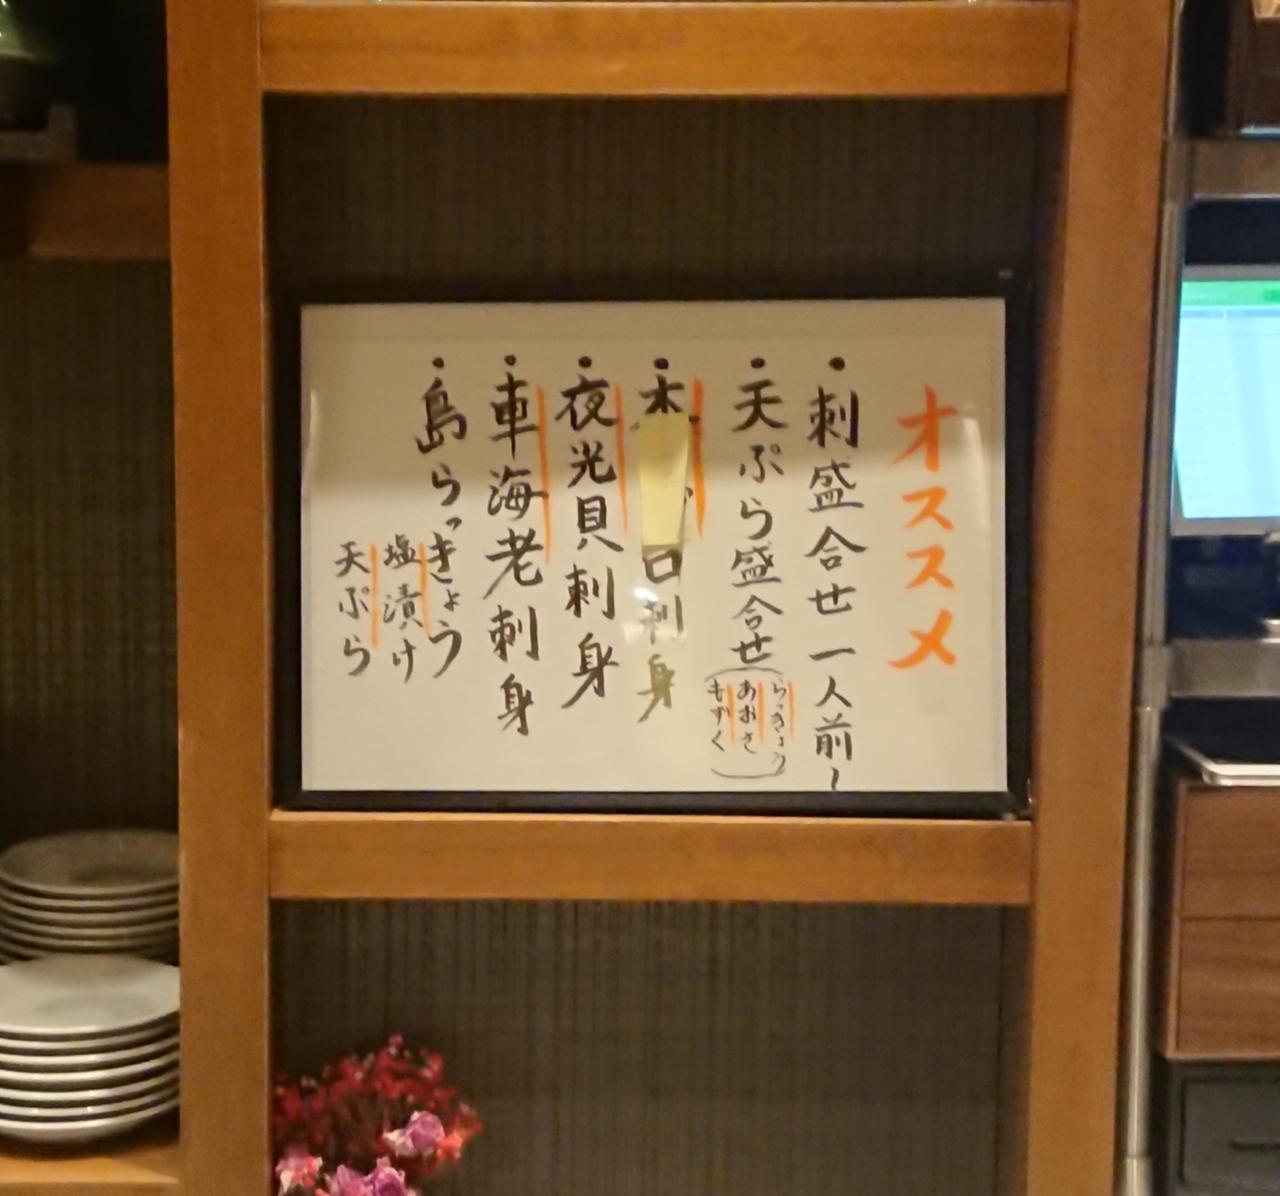 オススメ
・刺盛合せ一人前~
・天ぷら盛合せ
(らっきょう
あおさ
もずく)
・本 ロ刺身
・夜光貝刺身
・車海老刺身
・島らっきょう
塩漬け
天ぷら